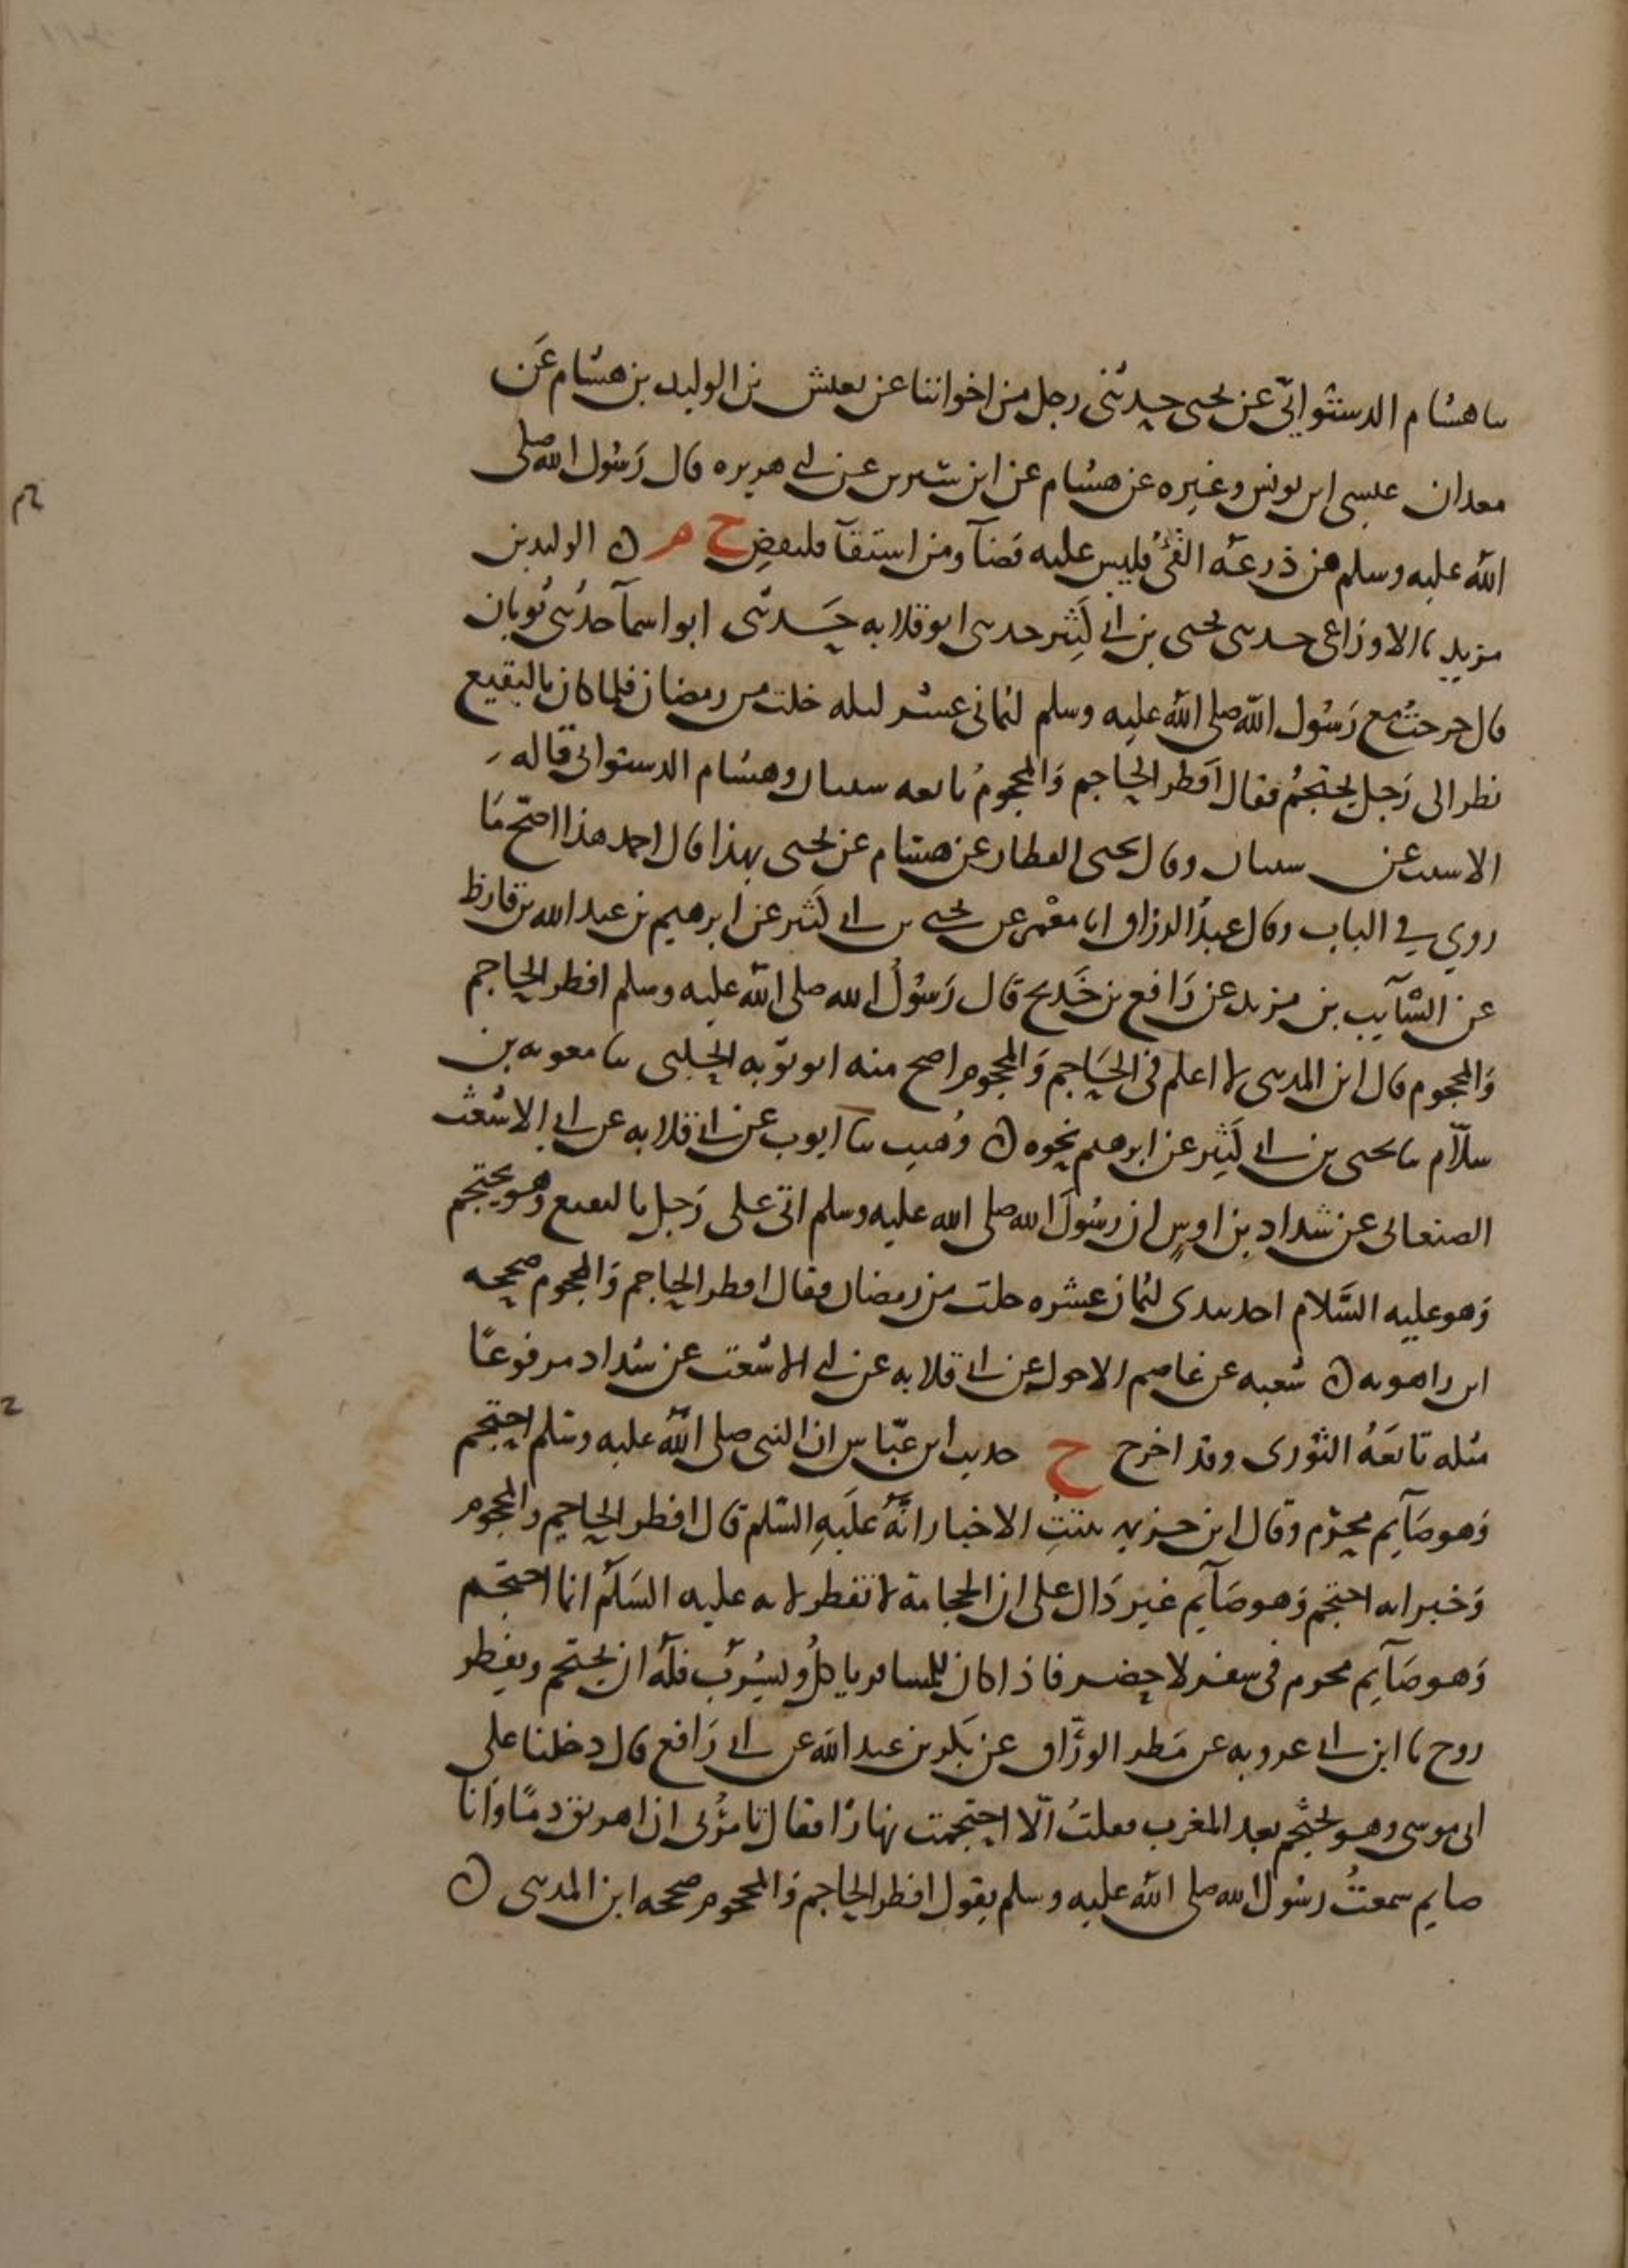 سا هشام الدستوائي عن يحيى حدثني رجل من اخواننا عن يعيش بن الوليد بن هشام عن
معدان عيسى ابن يونس وغيره عن هشام عن ابن سيرين عن ابي هريره قال رسول الله صلى
الله عليه وسلم من ذرعه القئ فليس عليه قضآ ومن استقآ فليقض ح م ن الوليد بن
مزيد نا الاوزاعي حدثني يحيى بن ابي كثير حدثني ابو قلابه حدثني ابو اسمآ حدثني ثوبان
قال خرجت مع رسول الله صلى الله عليه وسلم لثماني عشر ليله خلت من رمضان فلما كان بالبقيع
نظر الى رجل يحتجم فقال افطر الحاجم والمحجوم تابعه شيبان وهشام الدستوائي قاله
الاشيب عن شيبان وقال يحيى القطان عن هشام عن يحيى بهذا قال احمد هذا اصح ما
روي في الباب وقال عبد الرزاق انا معمر عن يحيى بن ابي كثير عن ابرهيم بن عبد الله بن قارظ
عن السآيب بن يزيد عن رافع بن خديج قال رسول الله صلى الله عليه وسلم افطر الحاجم
والمحجوم قال ابن المديني لا اعلم في الحاجم والمحجوم اصح منه ابو توبه الحلبي سا معويه بن
سلام سا يحيى بن ابي كثير عن ابرهيم نحوه ن وهيب سا ايوب عن ابي قلابه عن ابي الاشعث
الصنعاني عن شداد بن اوس ان رسول الله صلى الله عليه وسلم اتى على رجل بالبقيع وهو يحتجم
وهو عليه السلام اخد بيدي لثمان عشره خلت من رمضان فقال افطر الحاجم والمحجوم صححه
ابن راهويه ن شعبه عن عاصم الاحول عن ابي قلابه عن ابي الاشعث عن شداد مرفوعا
مثله تابعه الثوري وقد اخرج ح حديث ابن عباس ان النبي صلى الله عليه وسلم احتجم
وهو صآيم محرم وقال ابن خزيمه ثبتت الاخبار انه عليه السلم قال افطر الحاجم والمحجوم
وخبر انه احتجم وهو صآيم غير دال على ان الحجامة لا تفطر لانه عليه السلم انما احتجم
وهو صآيم محرم في سفر لا حضر فاذا كان للمسافر ياكل ويشرب فله ان يحتجم ويفطر
روح نا ابن ابي عروبه عن مطر الوراق عن بكر بن عبد الله عن ابي رافع قال دخلنا على
ابي موسى وهو يحتجم بعد المغرب فقلت الا احتجمت نهارا فقال تامرني ان اهريق دما وانا
صايم سمعت رسول الله صلى الله عليه وسلم يقول افطر الحاجم والمحجوم صححه ابن المديني ن